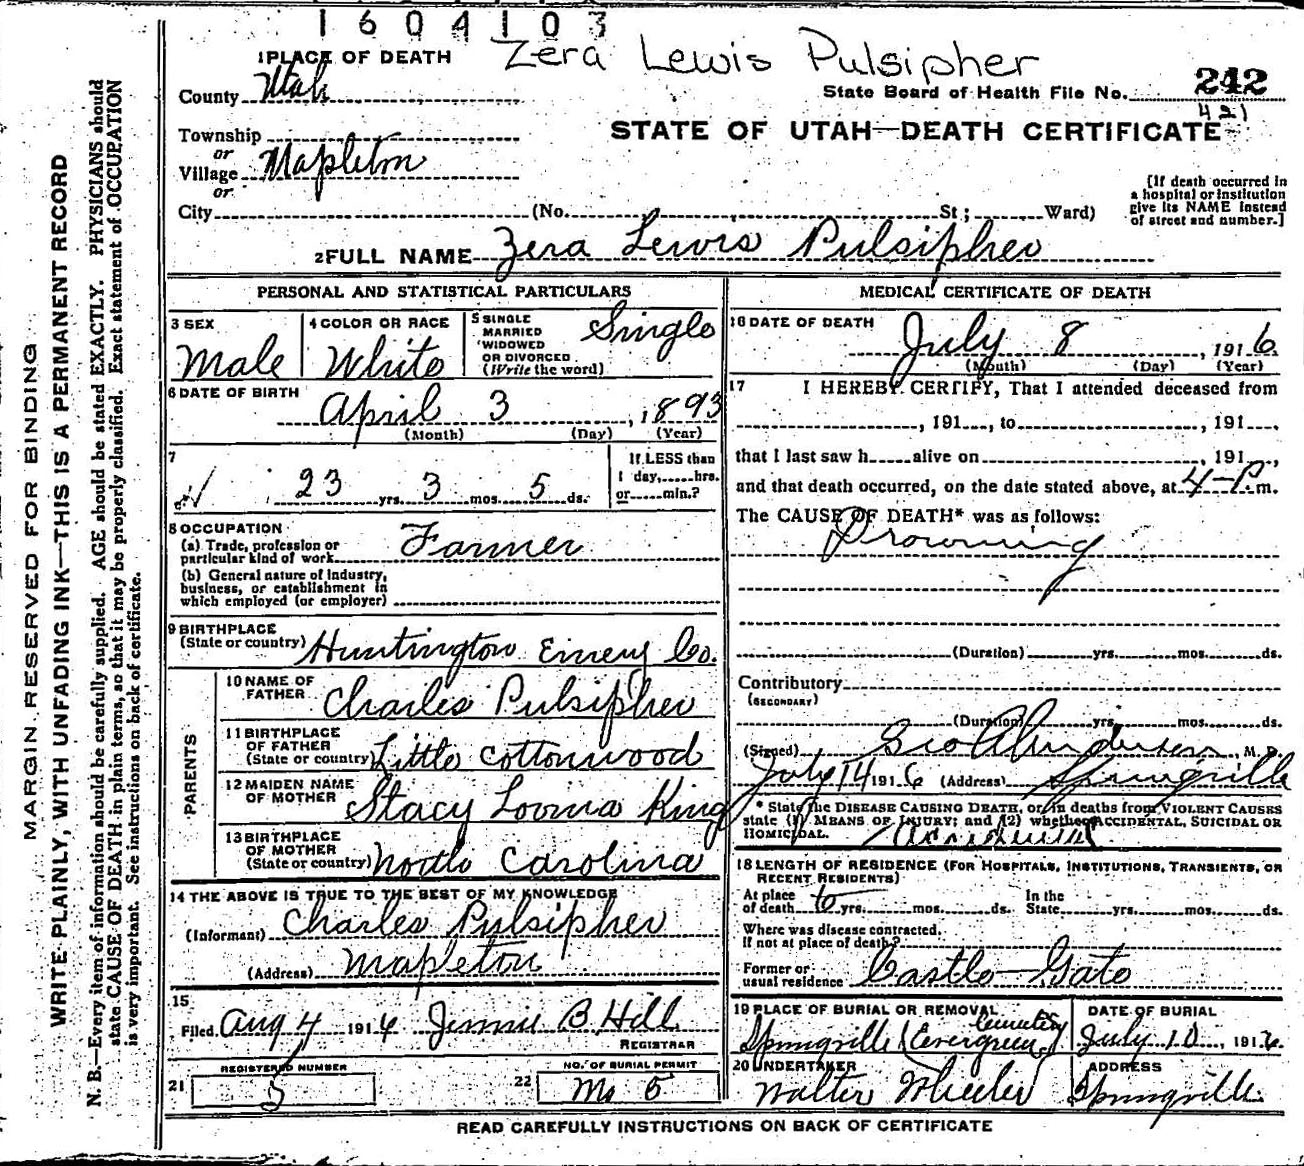 1604103
Zera Lewis Pulsipher
1 PLACE OF DEATH
County Utah
State Board of Health File No. 242
421
STATE OF UTAH—DEATH CERTIFICATE
Township
or
Village Mapleton
or
City (No. St; Ward)
[If death occurred in
a hospital or institution
give its NAME instead
of street and number.]
2 FULL NAME Zera Lewis Pulsipher
PERSONAL AND STATISTICAL PARTICULARS
3 SEX
Male
4 COLOR OR RACE
White
5 SINGLE
MARRIED
WIDOWED
OR DIVORCED
(Write the word)
Single
6 DATE OF BIRTH
April 3, 1893
(Month) (Day) (Year)
7
23 yrs. 3 mos. 5 ds.
If LESS than
1 day, hrs.
or min.?
8 OCCUPATION
(a) Trade, profession or
particular kind of work Farmer
(b) General nature of industry,
business, or establishment in
which employed (or employer)
9 BIRTHPLACE
(State or country) Huntington Emery Co.
PARENTS
10 NAME OF
FATHER Charles Pulsipher
11 BIRTHPLACE
OF FATHER
(State or country) Little Cottonwood
12 MAIDEN NAME
OF MOTHER Stacy Lovina King
13 BIRTHPLACE
OF MOTHER
(State or country) North Carolina
14 THE ABOVE IS TRUE TO THE BEST OF MY KNOWLEDGE
(Informant) Charles Pulsipher
(Address) Mapleton
15
Filed Aug 4 1916 Jennie B. Hill
REGISTRAR
21 REGISTERED NUMBER
5
22 NO. OF BURIAL PERMIT
No 5
MEDICAL CERTIFICATE OF DEATH
16 DATE OF DEATH
July 8, 1916
(Month) (Day) (Year)
17 I HEREBY CERTIFY, That I attended deceased from
, 191 , to , 191 ,
that I last saw h alive on , 191 ,
and that death occurred, on the date stated above, at 4-P. m.
The CAUSE OF DEATH* was as follows:
Drowning
(Duration) yrs. mos. ds.
Contributory
(SECONDARY)
(Duration) yrs. mos. ds.
(Signed) Geo A Anderson, M. D.
July 14 1916 (Address) Springville
* State the DISEASE CAUSING DEATH, or, in deaths from VIOLENT CAUSES
state (1) MEANS OF INJURY; and (2) whether ACCIDENTAL, SUICIDAL OR
HOMICIDAL. Accidental
18 LENGTH OF RESIDENCE (FOR HOSPITALS, INSTITUTIONS, TRANSIENTS, OR
RECENT RESIDENTS)
At place
of death yrs. mos. ds.
In the
State yrs. mos. ds.
Where was disease contracted,
If not at place of death?
Former or
usual residence Castle Gate
19 PLACE OF BURIAL OR REMOVAL
Springville (Evergreen) Cemetery
DATE OF BURIAL
July 10, 1916
20 UNDERTAKER
Walter Wheeler
ADDRESS
Springville
READ CAREFULLY INSTRUCTIONS ON BACK OF CERTIFICATE
MARGIN RESERVED FOR BINDING
WRITE PLAINLY, WITH UNFADING INK—THIS IS A PERMANENT RECORD
N. B.—Every item of information should be carefully supplied. AGE should be stated EXACTLY. PHYSICIANS should
state CAUSE OF DEATH in plain terms, so that it may be properly classified. Exact statement of OCCUPATION
is very important. See instructions on back of certificate.